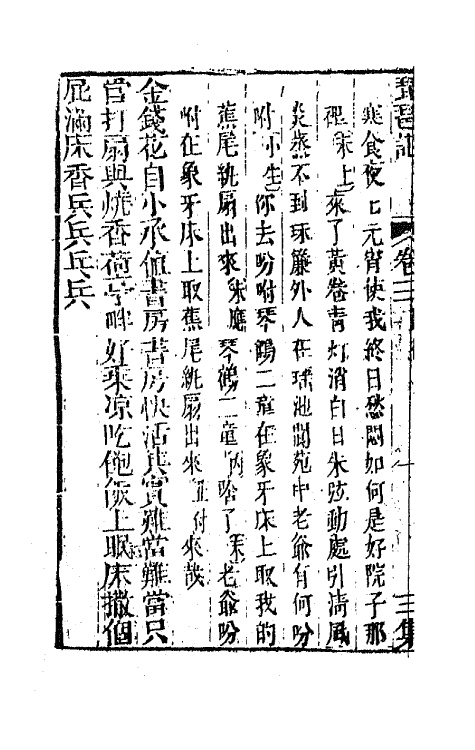 琵琶記 卷三 三集
寒食夜七元宵使我終日愁悶如何是好院子那
裡末上來了黃卷青灯消白日朱弦動處引清風
炎蒸不到珠簾外人在瑤池閬苑中老爺有何吩
咐小生你去吩咐琴鶴二童在象牙床上取我的
蕉尾紈扇出來末應琴鶴二童內啥了末老爺吩
咐在象牙床上取蕉尾紈扇出來丑付來哉
金錢花自小承值書房書房快活其實難當難當只
官打扇與燒香荷亭畔好乘凉吃飽飯上眠床撒個
屁滿床香兵兵乓兵